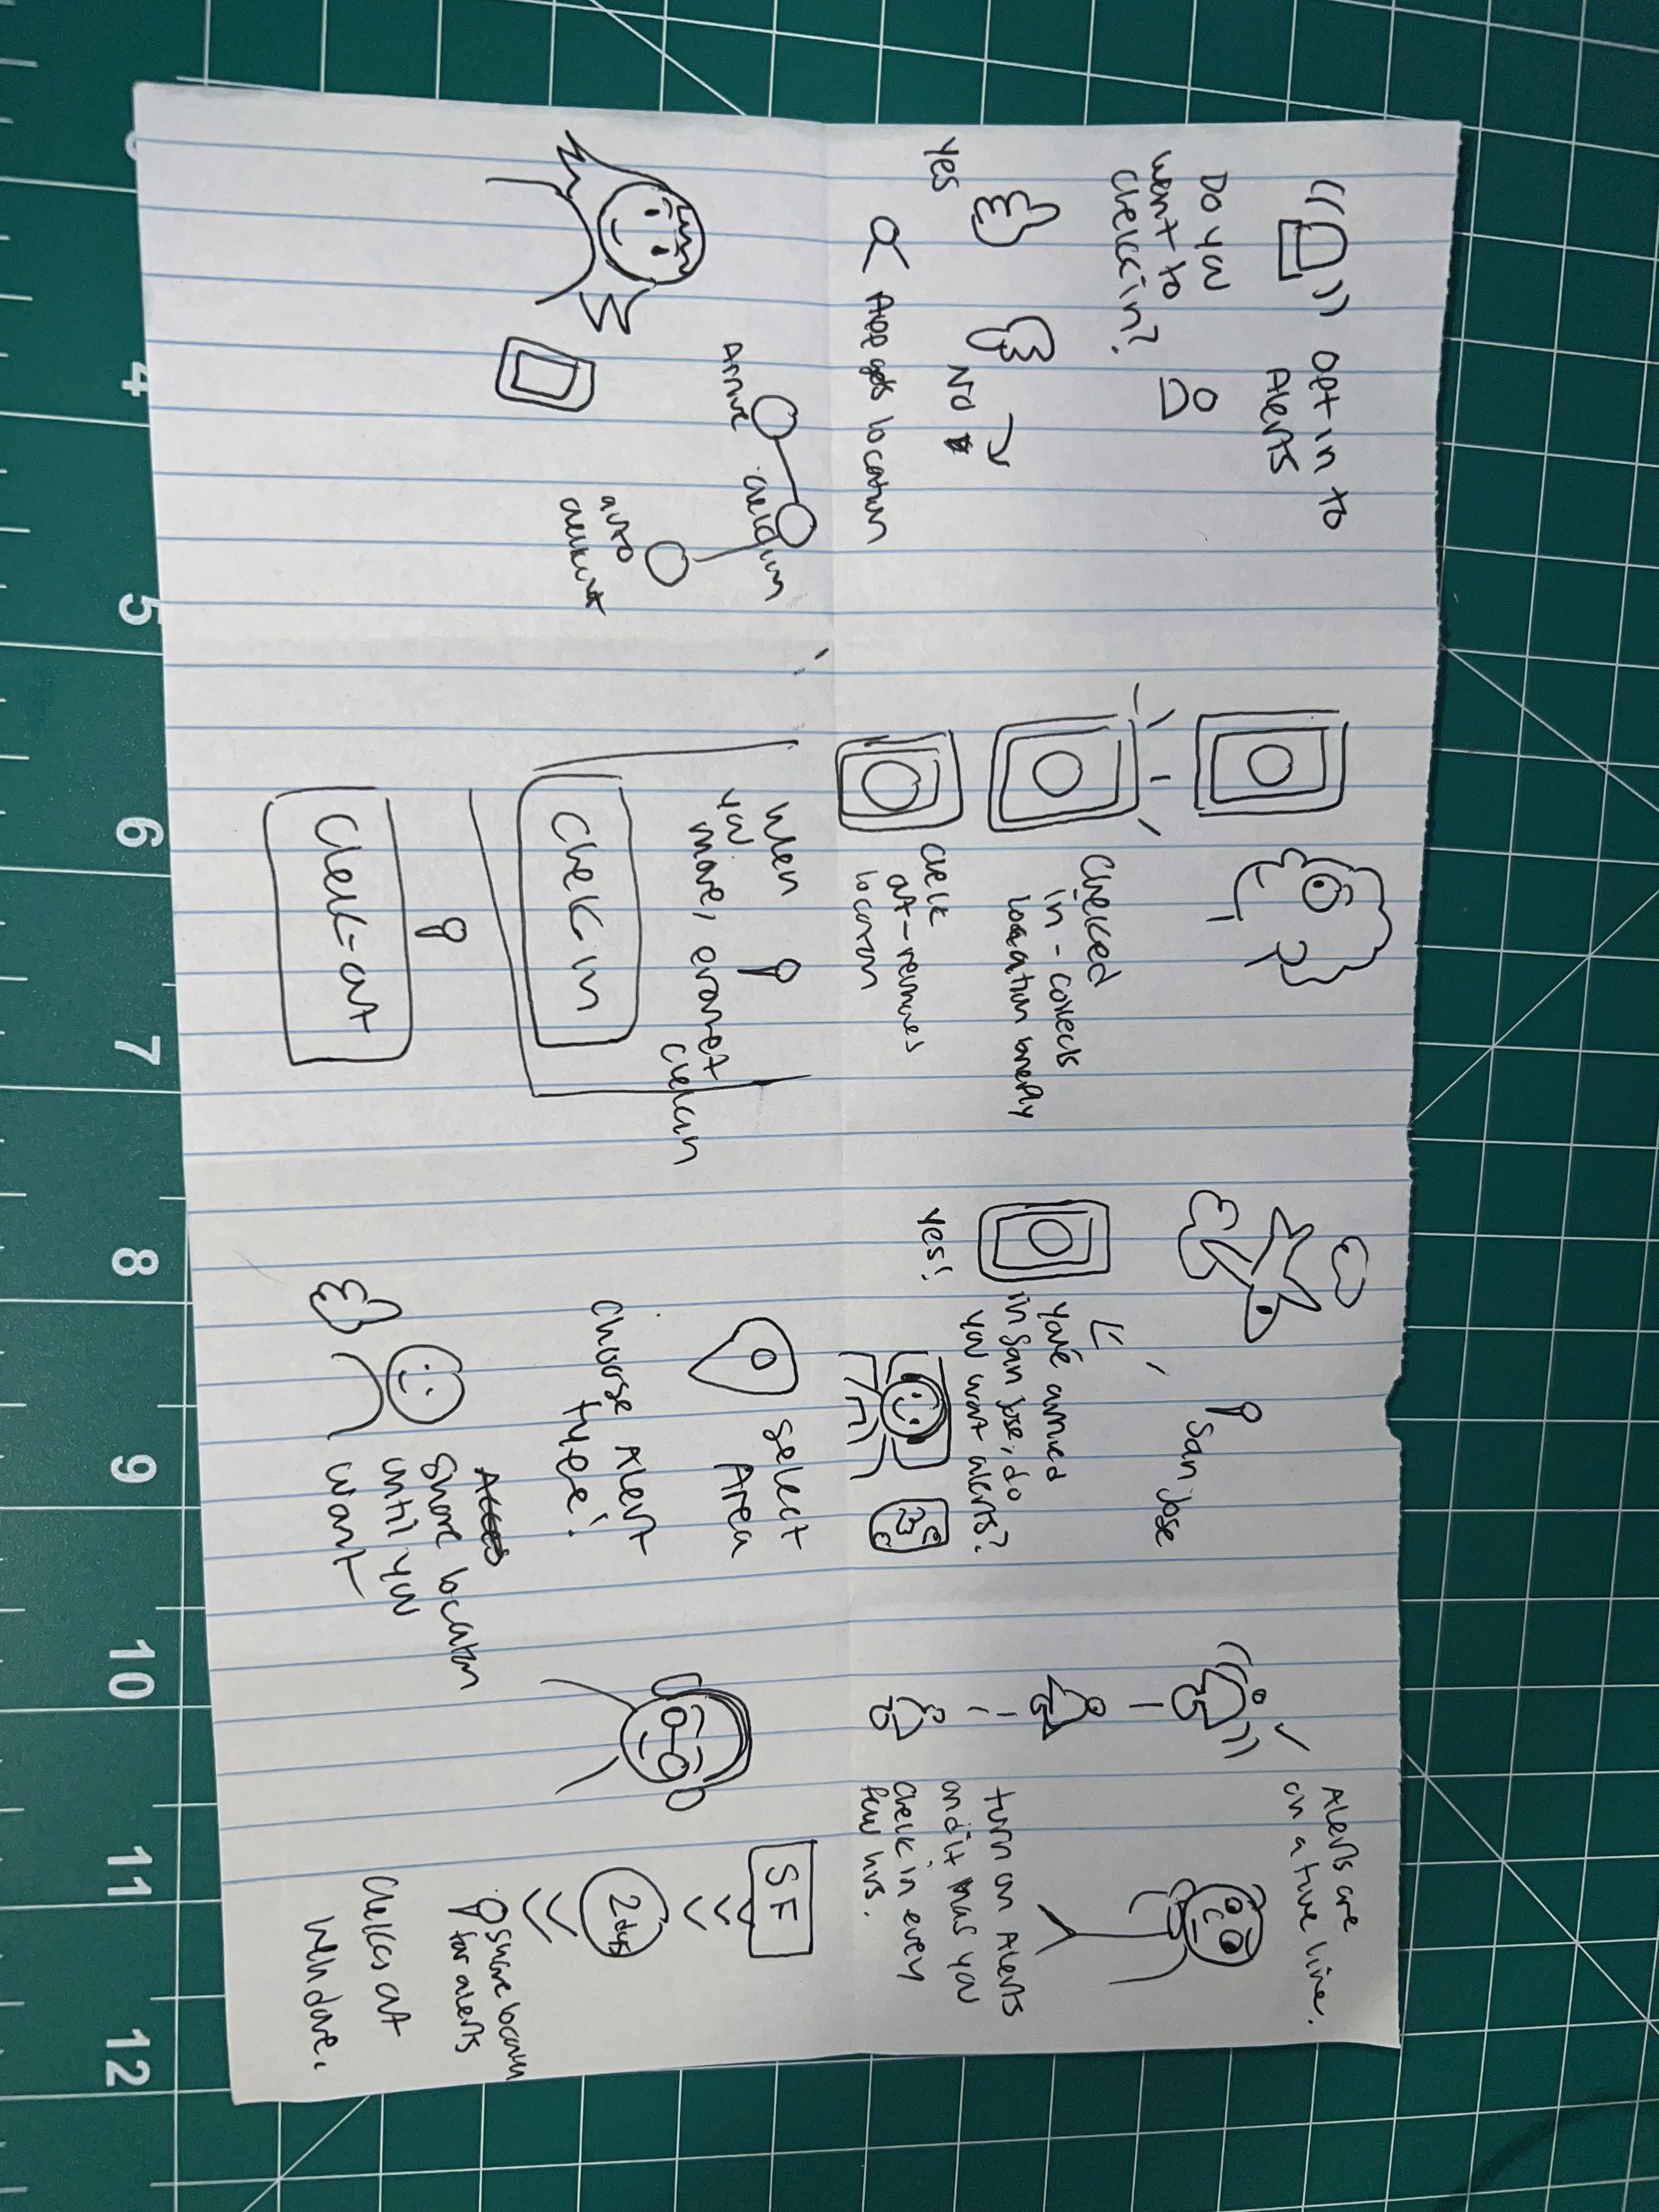 opt in to
Alerts
Do you
want to
check in?
Yes
No
App gets location
Checked
in - collects
location briefly
check
out - removes
location
San Jose
You've arrived
in San Jose, do
you want alerts?
Yes!
Alerts are
on a time line.
turn on Alerts
and it has you
check in every
few hrs.
Arrive
check in
auto
checkout
When
you
move, erases
checkin
Check in
Check-out
Select
Area
Choose Alert
Type!
Share location
until you
want
SF
2 days
share location
for alerts
Checks out
when done.
4
5
6
7
8
9
10
11
12